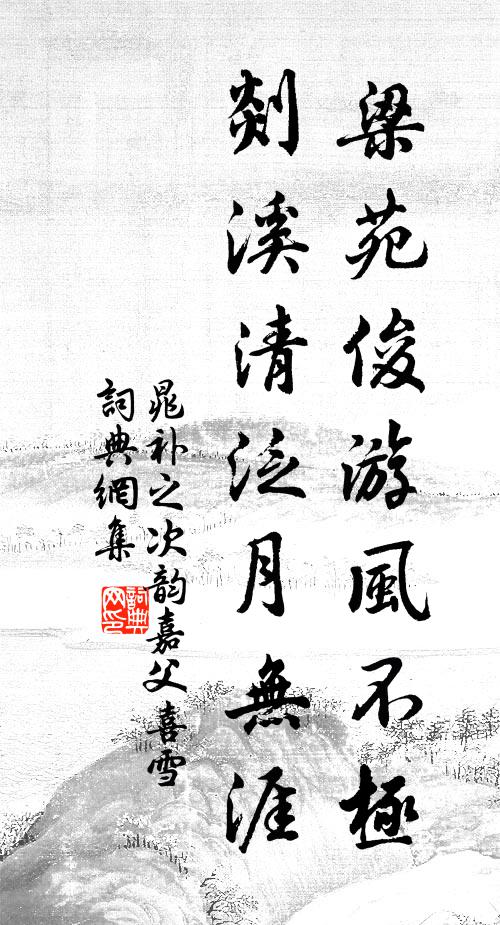 梁苑俊游風不極
剡溪清泛月無涯
晁补之次韵嘉父喜雪
詞典網集
詞典
网印